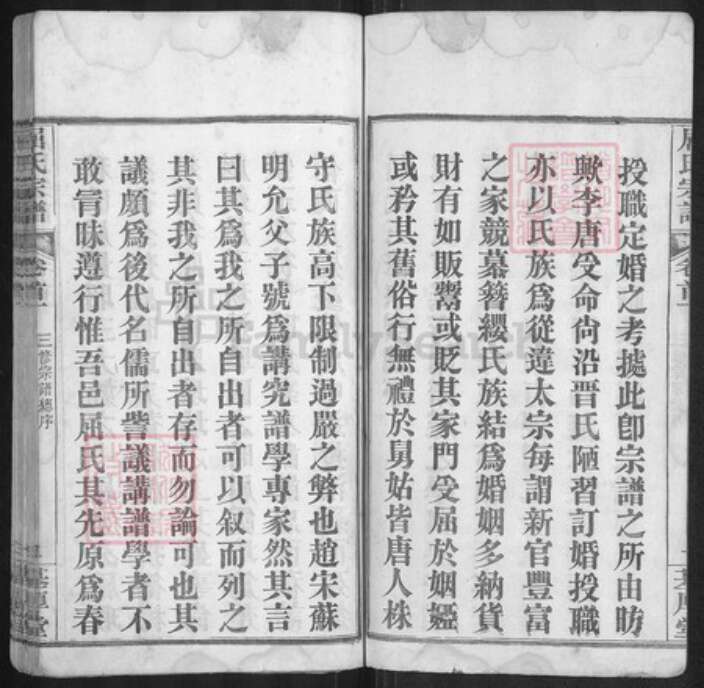 投職定婚之考據此卽宗譜之所由昉
歟李唐受命尙沿晋氏陋習訂婚投職
亦以氏族爲從違太宗每謂新官豐富
之家競慕簪纓氏族結爲婚姻多納貨
財有如販鬻或貶其家門受屈於姻婭
或矜其舊俗行無禮於舅姑皆唐人株
守氏族高下限制過嚴之弊也趙宋蘇
明允父子號爲講究譜學專家然其言
曰其爲我之所自出者可以叙而列之
其非我之所自出者存而勿論可也其
議頗爲後代名儒所訾議講譜學者不
敢冐昧遵行惟吾邑屈氏其先原爲春
屈氏宗譜
卷首一
三修宗譜總序